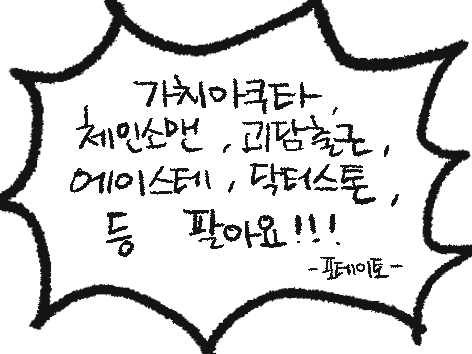 가치아쿡타,
체인소맨, 괴담출근,
에이스테, 닥터스톤,
등 팔아요!!!
-포테이토-